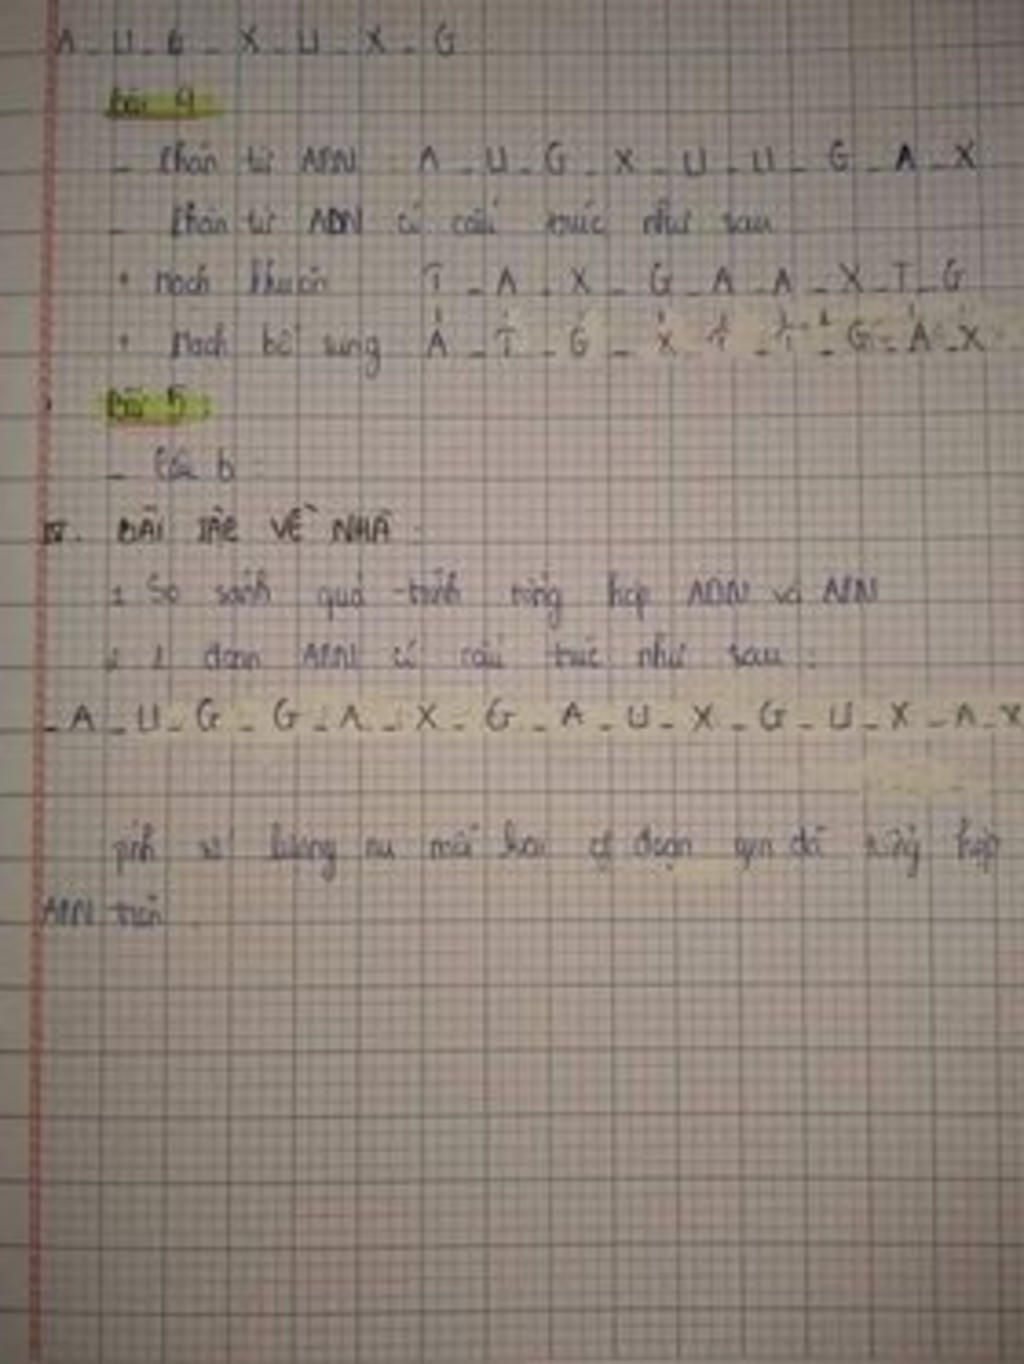 A _ U _ G _ X _ U _ X _ G
Bài 4:
_ Phân tử ARN : A _ U _ G _ X _ U _ U _ G _ A _ X
_ Phân tử ADN có cấu trúc như sau
• Mạch khuôn T _ A _ X _ G _ A _ A _ X _ T _ G
• Mạch bổ sung A _ T _ G _ X _ T _ T _ G _ A _ X
Bài 5:
_ Câu b
IV. BÀI TẬP VỀ NHÀ :
1 So sánh quá trình tổng hợp ADN và ARN
2 1 đoạn ARN có cấu trúc như sau :
_ A _ U _ G _ G _ A _ X _ G _ A _ U _ X _ G _ U _ X _ A _ X
số lượng nu mỗi loại đoạn gen đó tổng hợp
ARN trên